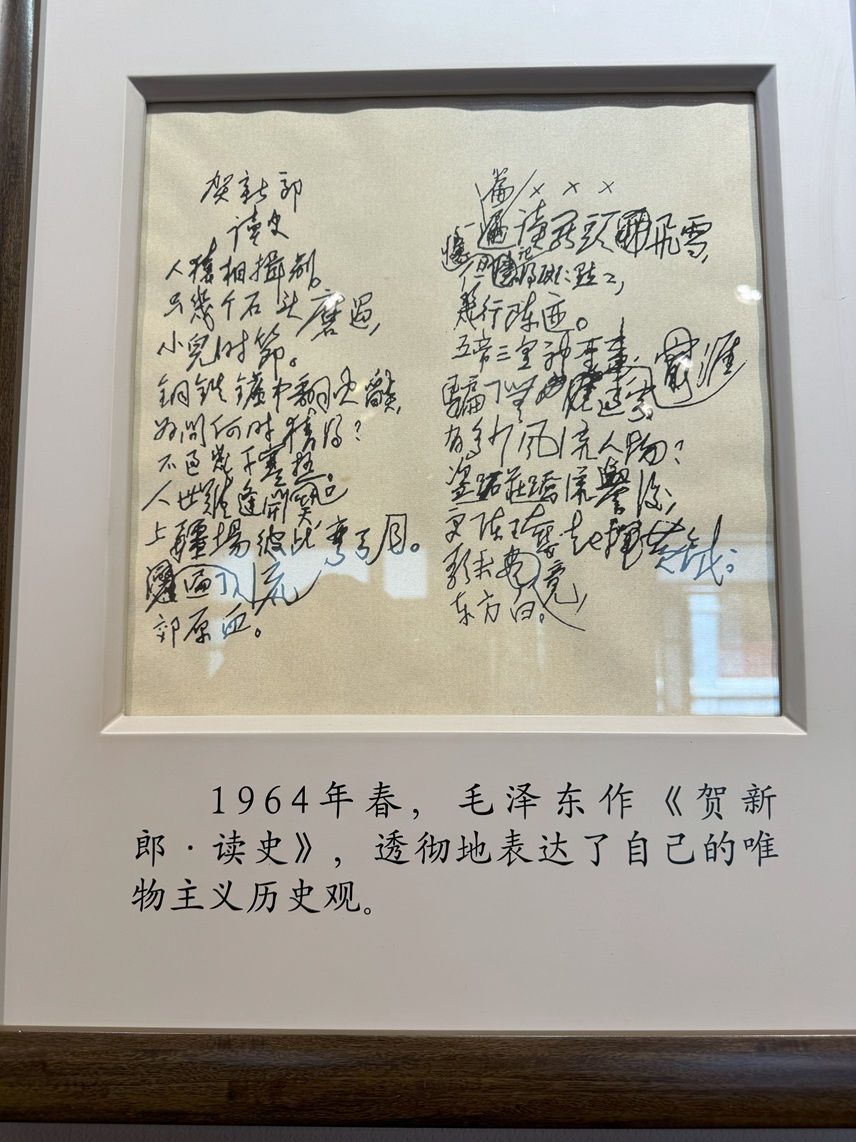 贺新郎
读史
人猿相揖别。
只幾个石头磨过,
小兒时節。
銅鉄炉中翻火焰,
为问何时猜得?
不过幾千寒热。
人世难逢開口笑
上疆場彼此弯弓月。
流遍了
郊原血。
篇×××
读罢头飞雪,
但记得斑斑点点,
幾行陈迹。
五帝三皇神圣事,
騙了無涯过客
有多少风流人物?
盗跖莊蹻流譽后,
更陈王奋起揮黄鉞。
歌未竟,
东方白。
1964年春，毛泽东作《贺新
郎·读史》，透彻地表达了自己的唯
物主义历史观。